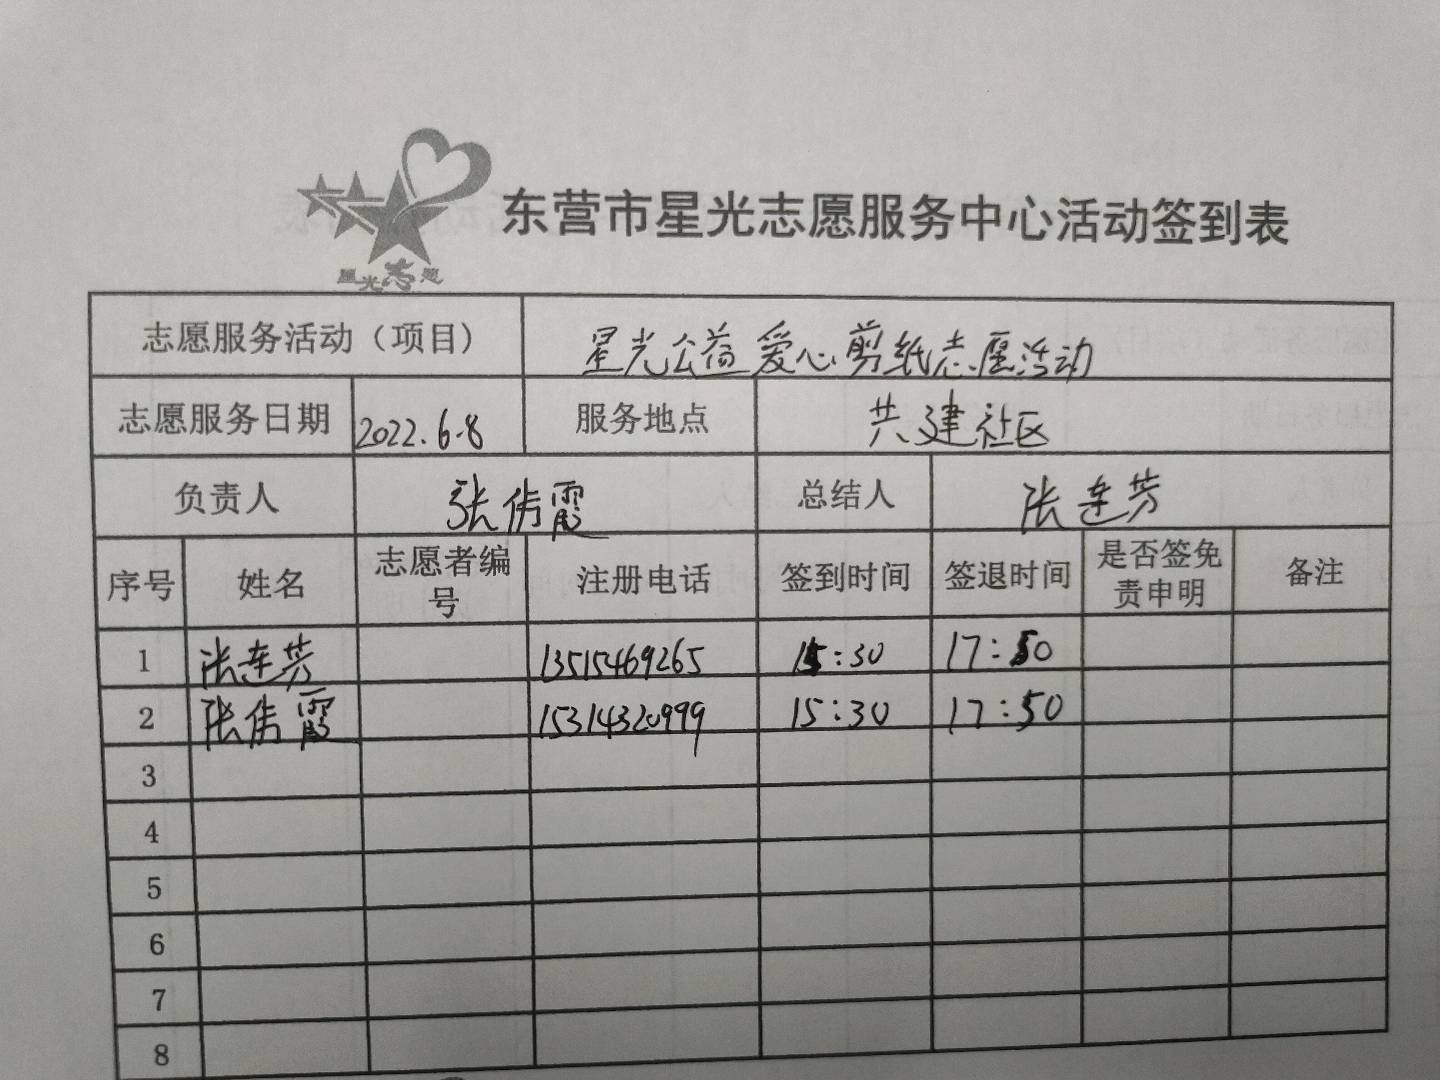 星光志愿
东营市星光志愿服务中心活动签到表
志愿服务活动（项目） 星光公益爱心剪纸志愿活动
志愿服务日期 2022.6.8 服务地点 共建社区
负责人 张倩霞 总结人 张连芳
序号 姓名 志愿者编号 注册电话 签到时间 签退时间 是否签免责申明 备注
1 张连芳 13515469265 15:30 17:50
2 张倩霞 15314320999 15:30 17:50
3
4
5
6
7
8